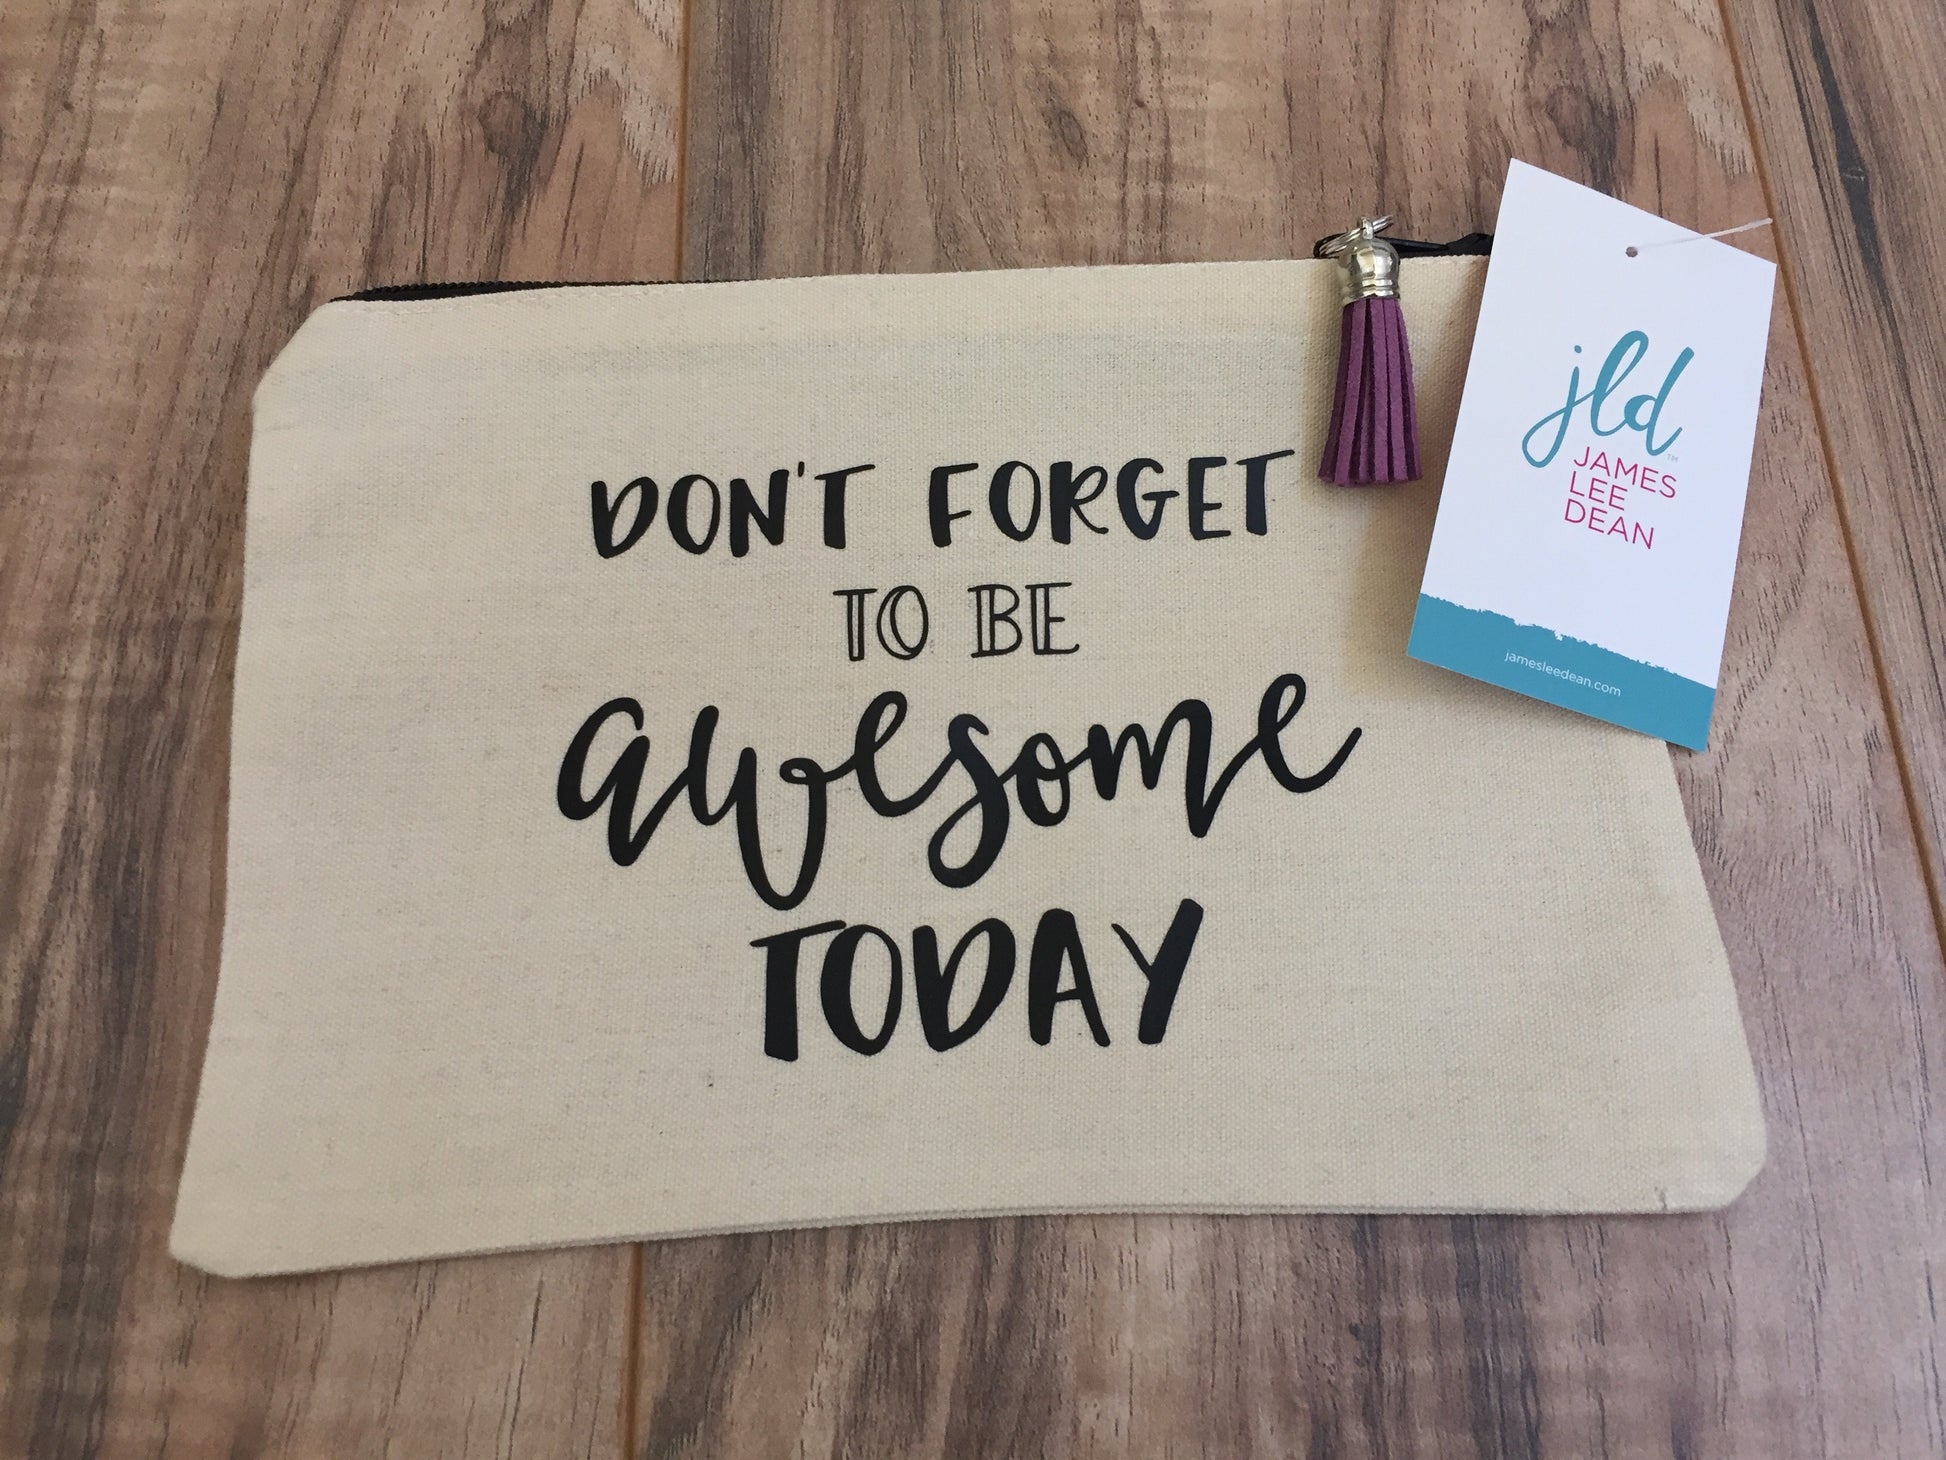 DON'T FORGET
TO BE
awesome
TODAY
jld™
JAMES
LEE
DEAN
jamesleedean.com